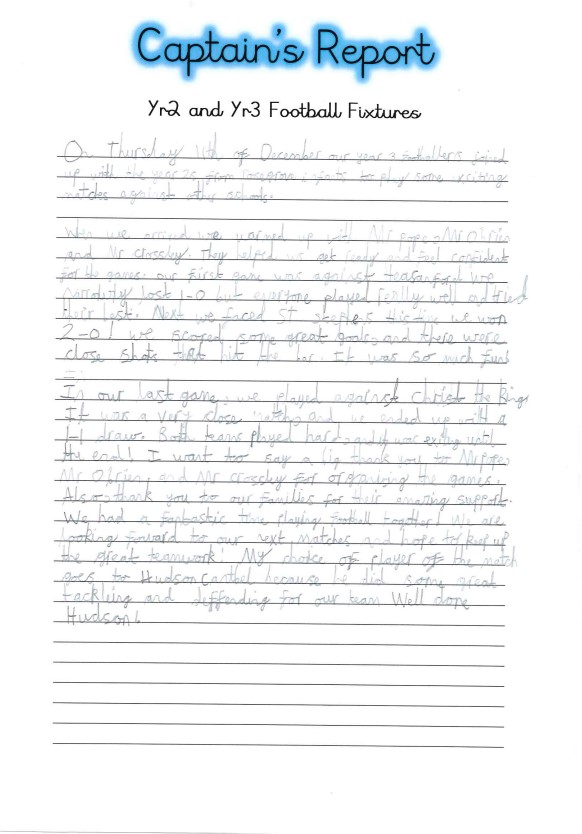 Captain's Report
Yr2 and Yr3 Football Fixtures
On Thursday 11th of December our year 3 footballers joined
up with the year 2s from to play some exciting
matches against other schools.
When we arrived we warmed up with Mr pope, Mr O'Brien
and Mr crossley. They helped us get ready and feel confident
for the games. our first game was against we
lost 1-0 but everyone played really well and tried
their best. Next we faced St this time we won
2-0! we scored some great goals and there were
close shots that hit the bar. It was so much fun!
In our last game, we played against Christ the Kings
It was a very close match and we ended up with a
1-1 draw. Both teams played hard and it was exciting until
the end! I want to say a big thank you to Mr pope,
Mr O'Brien, and Mr crossley for organising the games.
Also thank you to our families for their amazing support.
We had a fantastic time playing football together! We are
looking forward to our next matches and hope to keep up
the great teamwork! My choice of player of the match
goes to Hudson because he did some great
tackleing and deffending for our team Well done
Hudson!